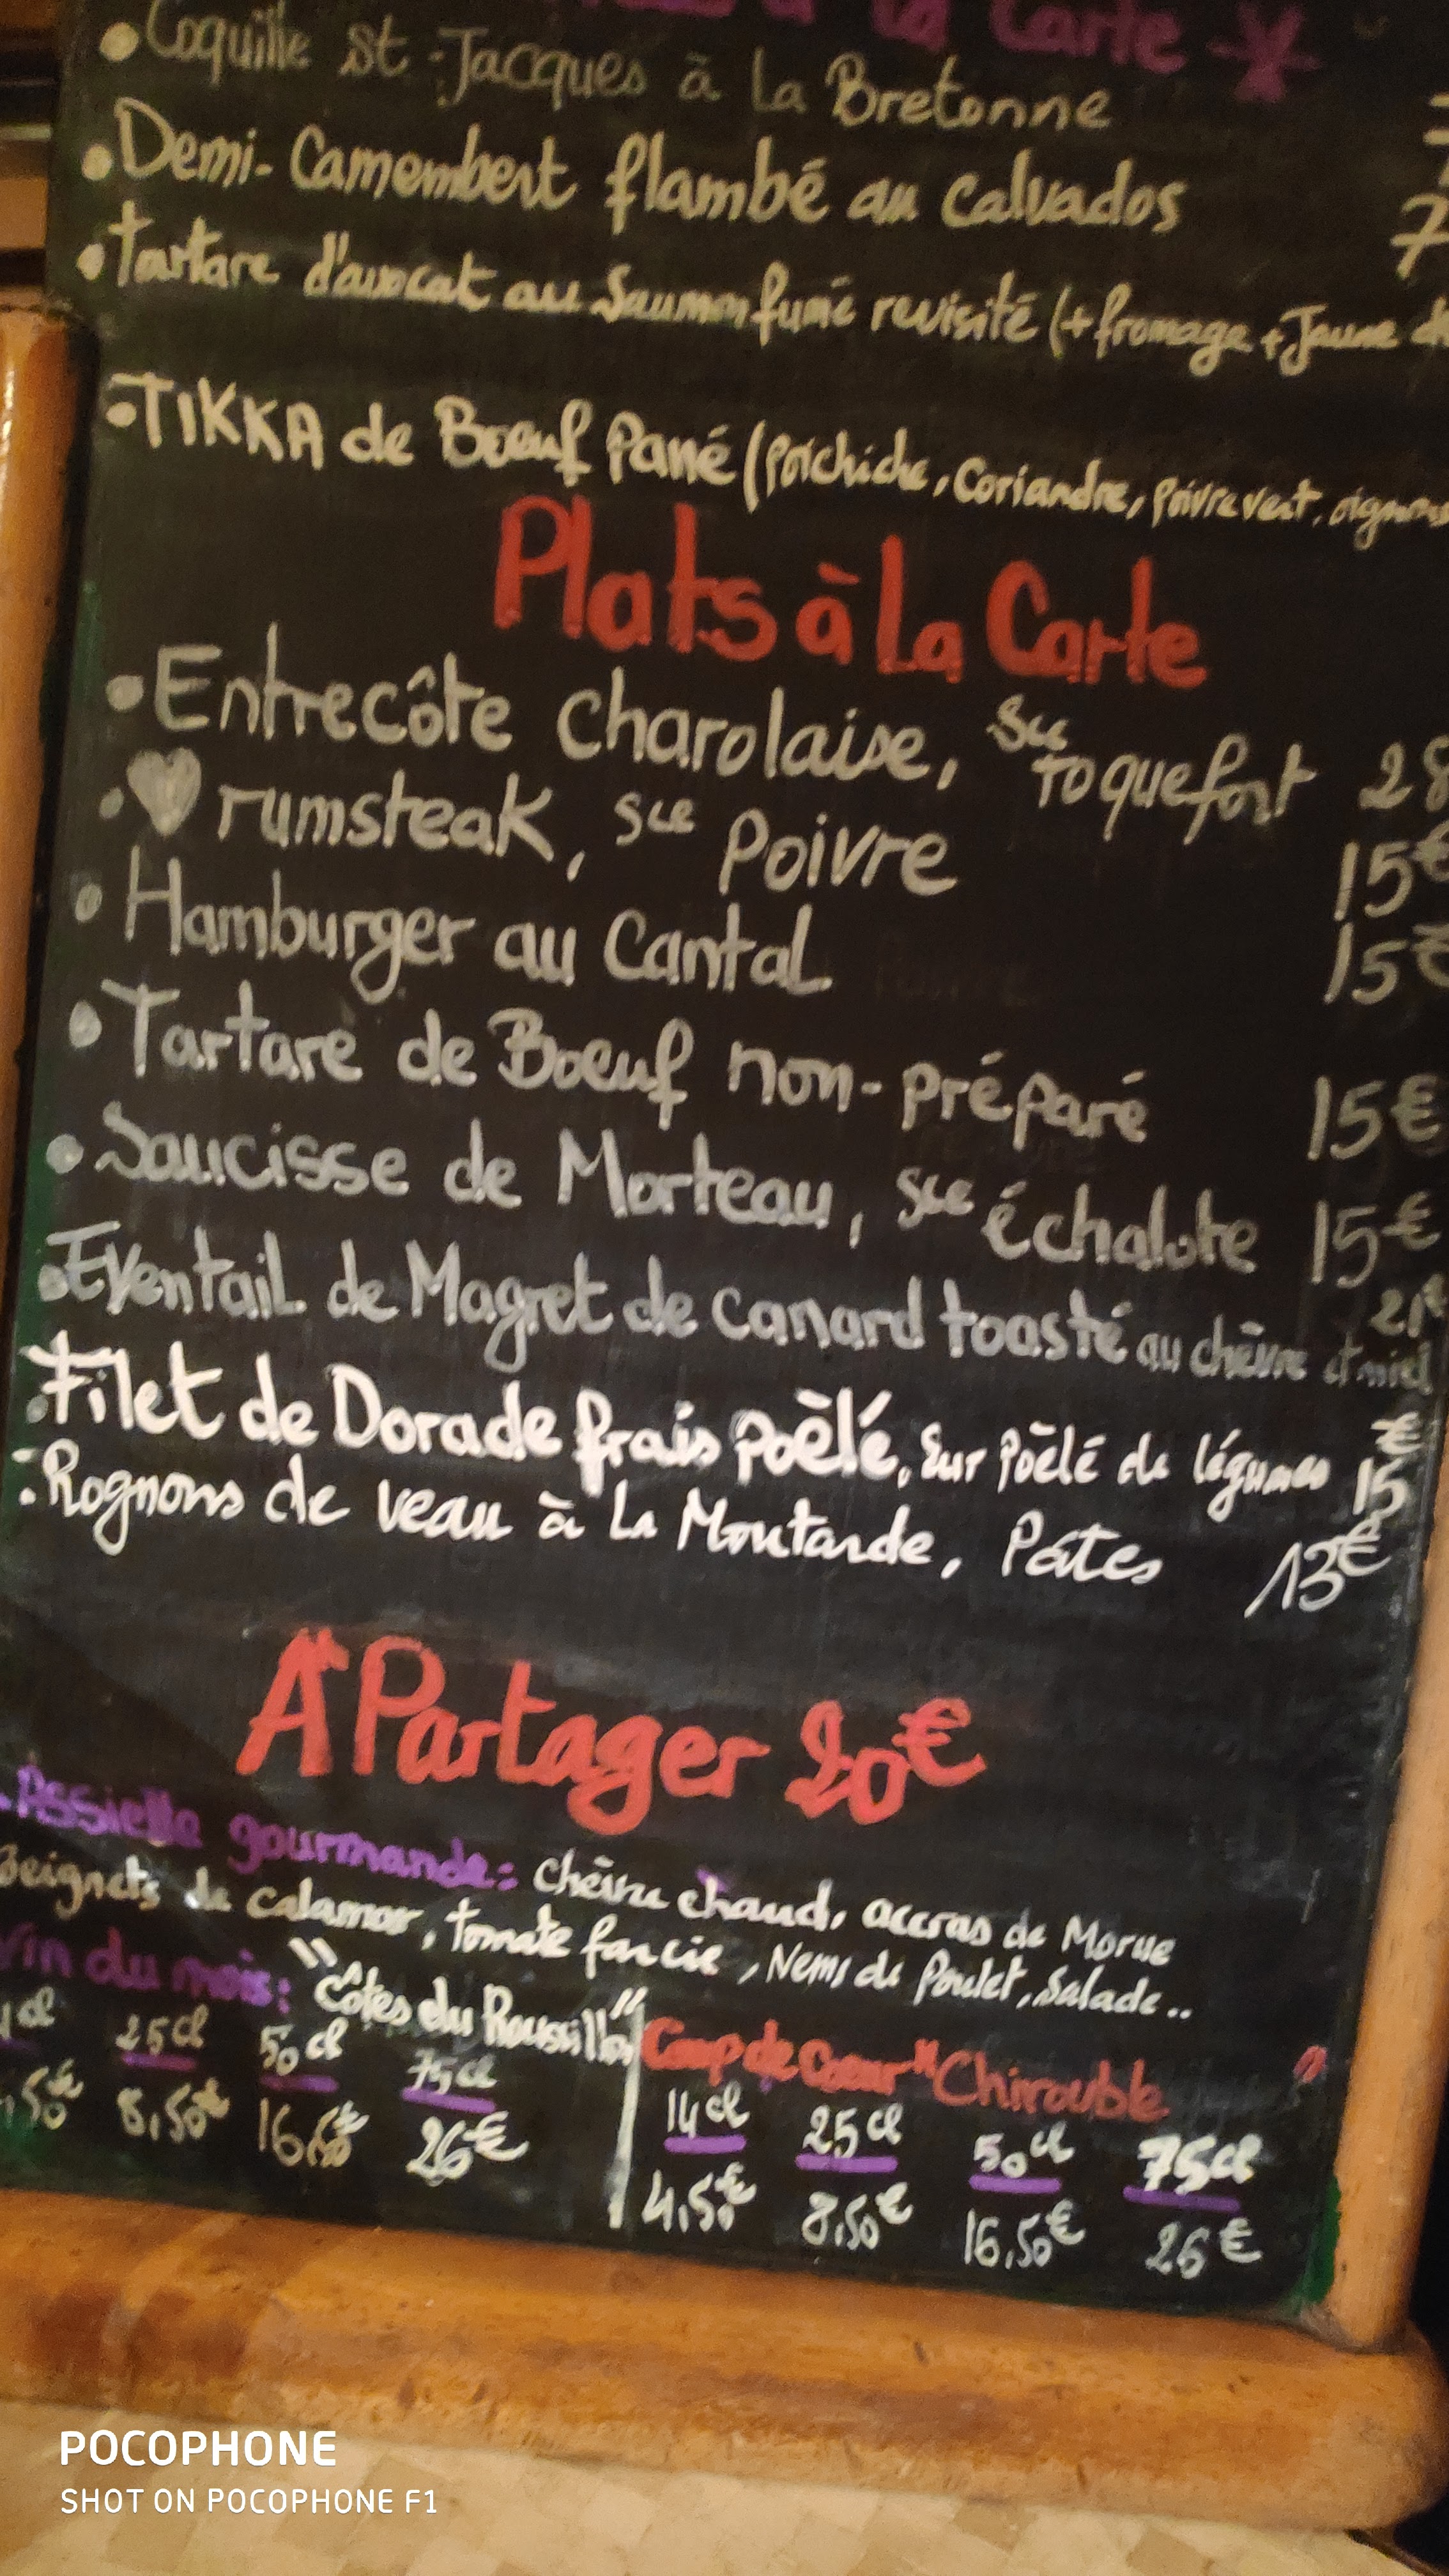 à la Carte
• Coquille St-Jacques à la Bretonne
• Demi-Camembert flambé au calvados 7
• Tartare d'avocat au Saumon fumé revisité (+ fromage + Jaune
• TIKKA de Boeuf Pané (Poichiche, Coriandre, Poivre vert, oignons
Plats à La Carte
• Entrecôte charolaise, Sce roquefort 28
• ♥ rumsteak, Sce Poivre 15€
• Hamburger au Cantal 15€
• Tartare de Boeuf non-préparé 15€
• Saucisse de Morteau, Sce échalote 15€
• Eventail de Magret de canard toasté au chèvre et miel 21€
• Filet de Dorade frais Poêlé, Sur Poêlé de légumes 15€
• Rognons de veau à La Moutarde, Pates 13€
A Partager 20€
• Assiette gourmande: chèvre chaud, accras de Morue
Beignets de calamar, tomate farcie, Nems de Poulet, Salade..
Vin du mois: "Côtes du Roussillon" Coup de Coeur "Chirouble"
cl 25cl 50cl 75cl 14cl 25cl 50cl 75cl
,50€ 8,50€ 16,50€ 26€ 4,50€ 8,50€ 16,50€ 26€
POCOPHONE
SHOT ON POCOPHONE F1